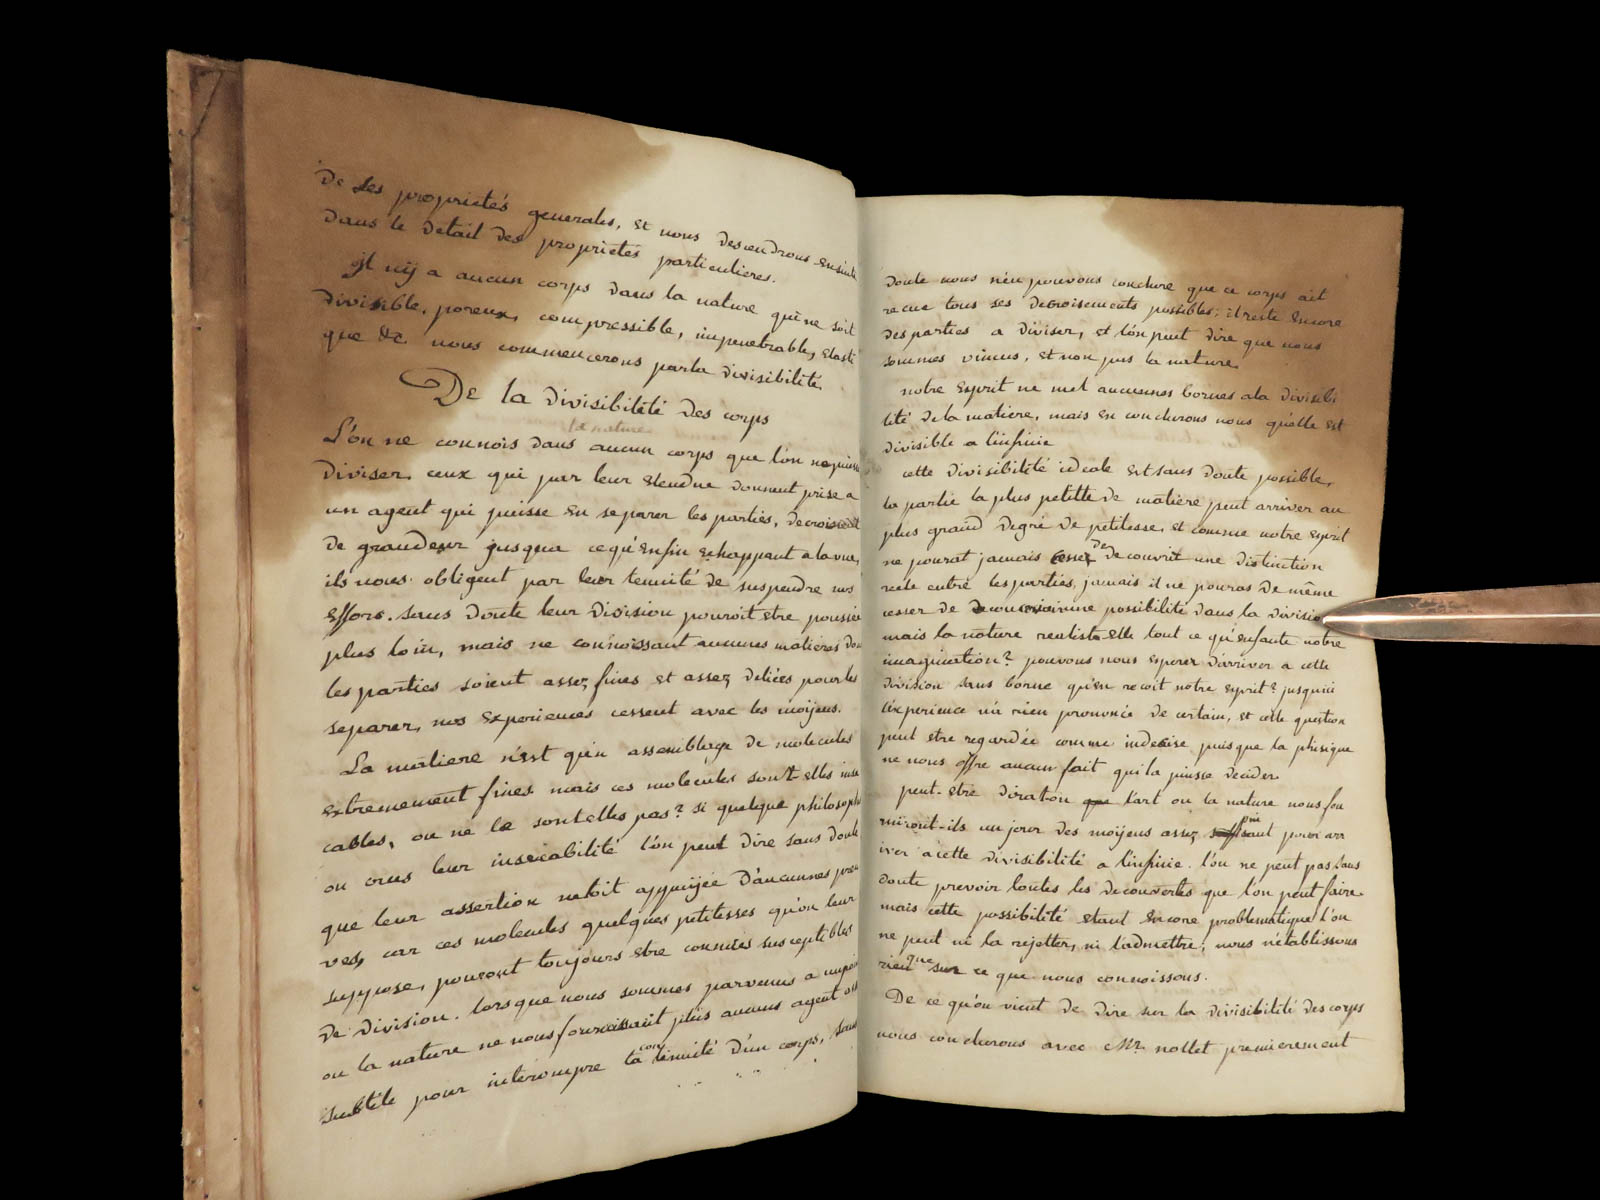 De ses proprietés generales, et nous descendrons ensuite
dans le detail des proprietés particulieres.
il n'ÿ a aucun corps dans la nature qui ne soit
divisible, poreux, compressible, impenetrable, elasti
que &c nous commencerons par la divisibilité.
De la divisibilité des corps
la nature
L'on ne connois dans aucun corps que l'on ne puisse
diviser. ceux qui par leur etendue donnent prise a
un agent qui puisse en separer les parties, decroissent
de grandeur jusqua ce qu'enfin echappant a la vue,
ils nous obligent par leur tenuité de suspendre nos
efforts. sans doute leur division pouroit etre poussée
plus loin, mais ne connoissant aucunes matieres dont
les parties soient assez fines et assez deliées pour les
separer, nos experiences cessent avec les moÿens.
La matiere n'est qu'un assemblage de molecules
extremement fines mais ces molecules sont elles inse
cables, ou ne le sont elles pas? si quelque philosophe
on crus leur insecabilité l'on peut dire sans doute
que leur assertion n'etoit appuÿée d'aucunnes preu
ves, car ces molecules quelques petitesses qu'on leur
suppose, pouront toujours etre connues susceptibles
de division. lorsque nous sommes parvenus a un point
ou la nature ne nous fournissant plus aucuns agent assés
subtile pour interompre la continuité d'un corps, sans
doute nous n'en pouvons conclure que ce corps ait
recue tous ses decroisements possibles; il reste encore
des parties a diviser, et l'on peut dire que nous
sommes vincus, et non pas la nature.
notre esprit ne met aucunnes bornes a la divisibi
lité de la matiere, mais en conclurons nous qu'elle est
divisible a l'infinie
cette divisibilité ideale est sans doute possible,
la partie la plus petitte de matiere peut arriver au
plus grand degré de petitesse, et comme notre esprit
ne pourat jamais cesser de decouvrir une distinction
reele entre les parties, jamais il ne pouras de même
cesser de decouvrir une possibilité dans la division
mais la nature realiste elle tout ce qu'enfante notre
imagination? pouvons nous esperer d'arriver a cette
division sans borne qu'en recoit notre esprit? jusquici
l'experience n'a rien prononcé de certain, et cette question
peut etre regardée comme indecise puisque la phisique
ne nous offre aucun fait qui la puisse decider
peut-etre dirat-on que l'art ou la nature nous fou
rniront-ils un jour des moÿens assez puissant pour arr
iver a cette divisibilité a l'infinie. l'on ne peut pas sans
doute prevoir toutes les decouvertes que l'on peut faire.
mais cette possibilité etant encore problematique l'on
ne peut ni la rejetter, ni l'admettre; nous n'etablissons
rien que sur ce que nous connoissons.
De ce qu'on vient de dire sur la divisibilité des corps
nous conclurons avec Mr. nollet premierement